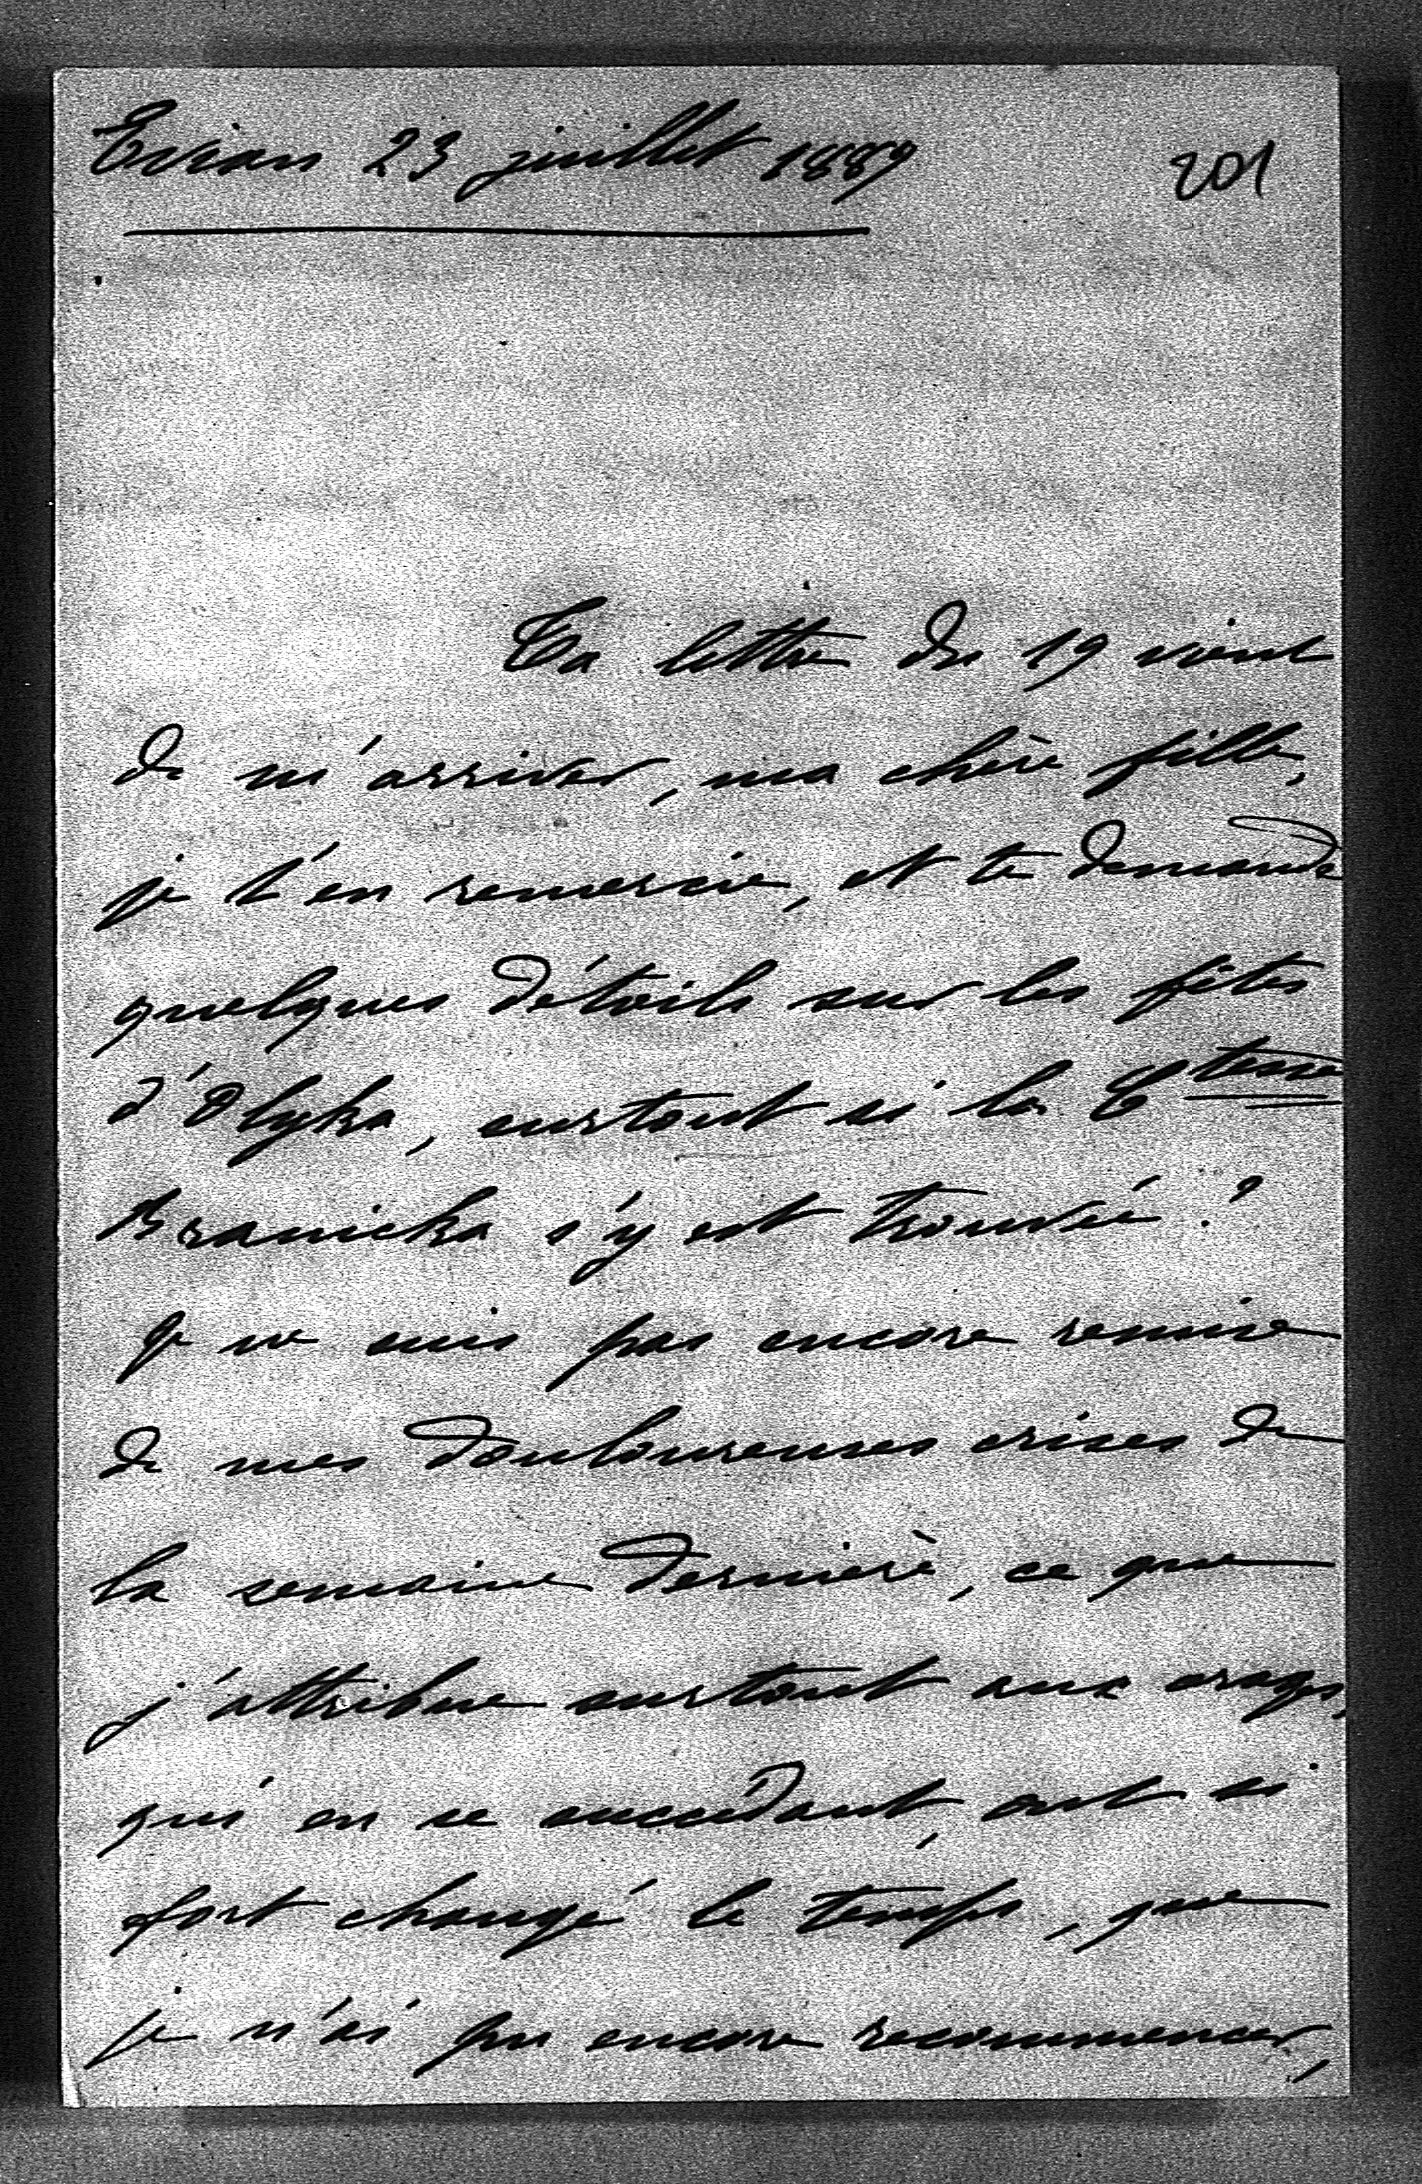 Evian 23 juillet 1889
201
Ta lettre du 19 vient
de m'arriver, ma chère fille,
je t'en remercie, et te demande
quelques détails sur les fêtes
d'Olyka, surtout si la Ctesse
Branicka s'y est trouvée?
Je ne suis pas encore remise
de mes douloureuses crises de
la semaine dernière, ce que
j'attribue surtout aux orages,
qui en se succédant, ont si
fort changé le temps, que
je n'ai pu encore recommencer,